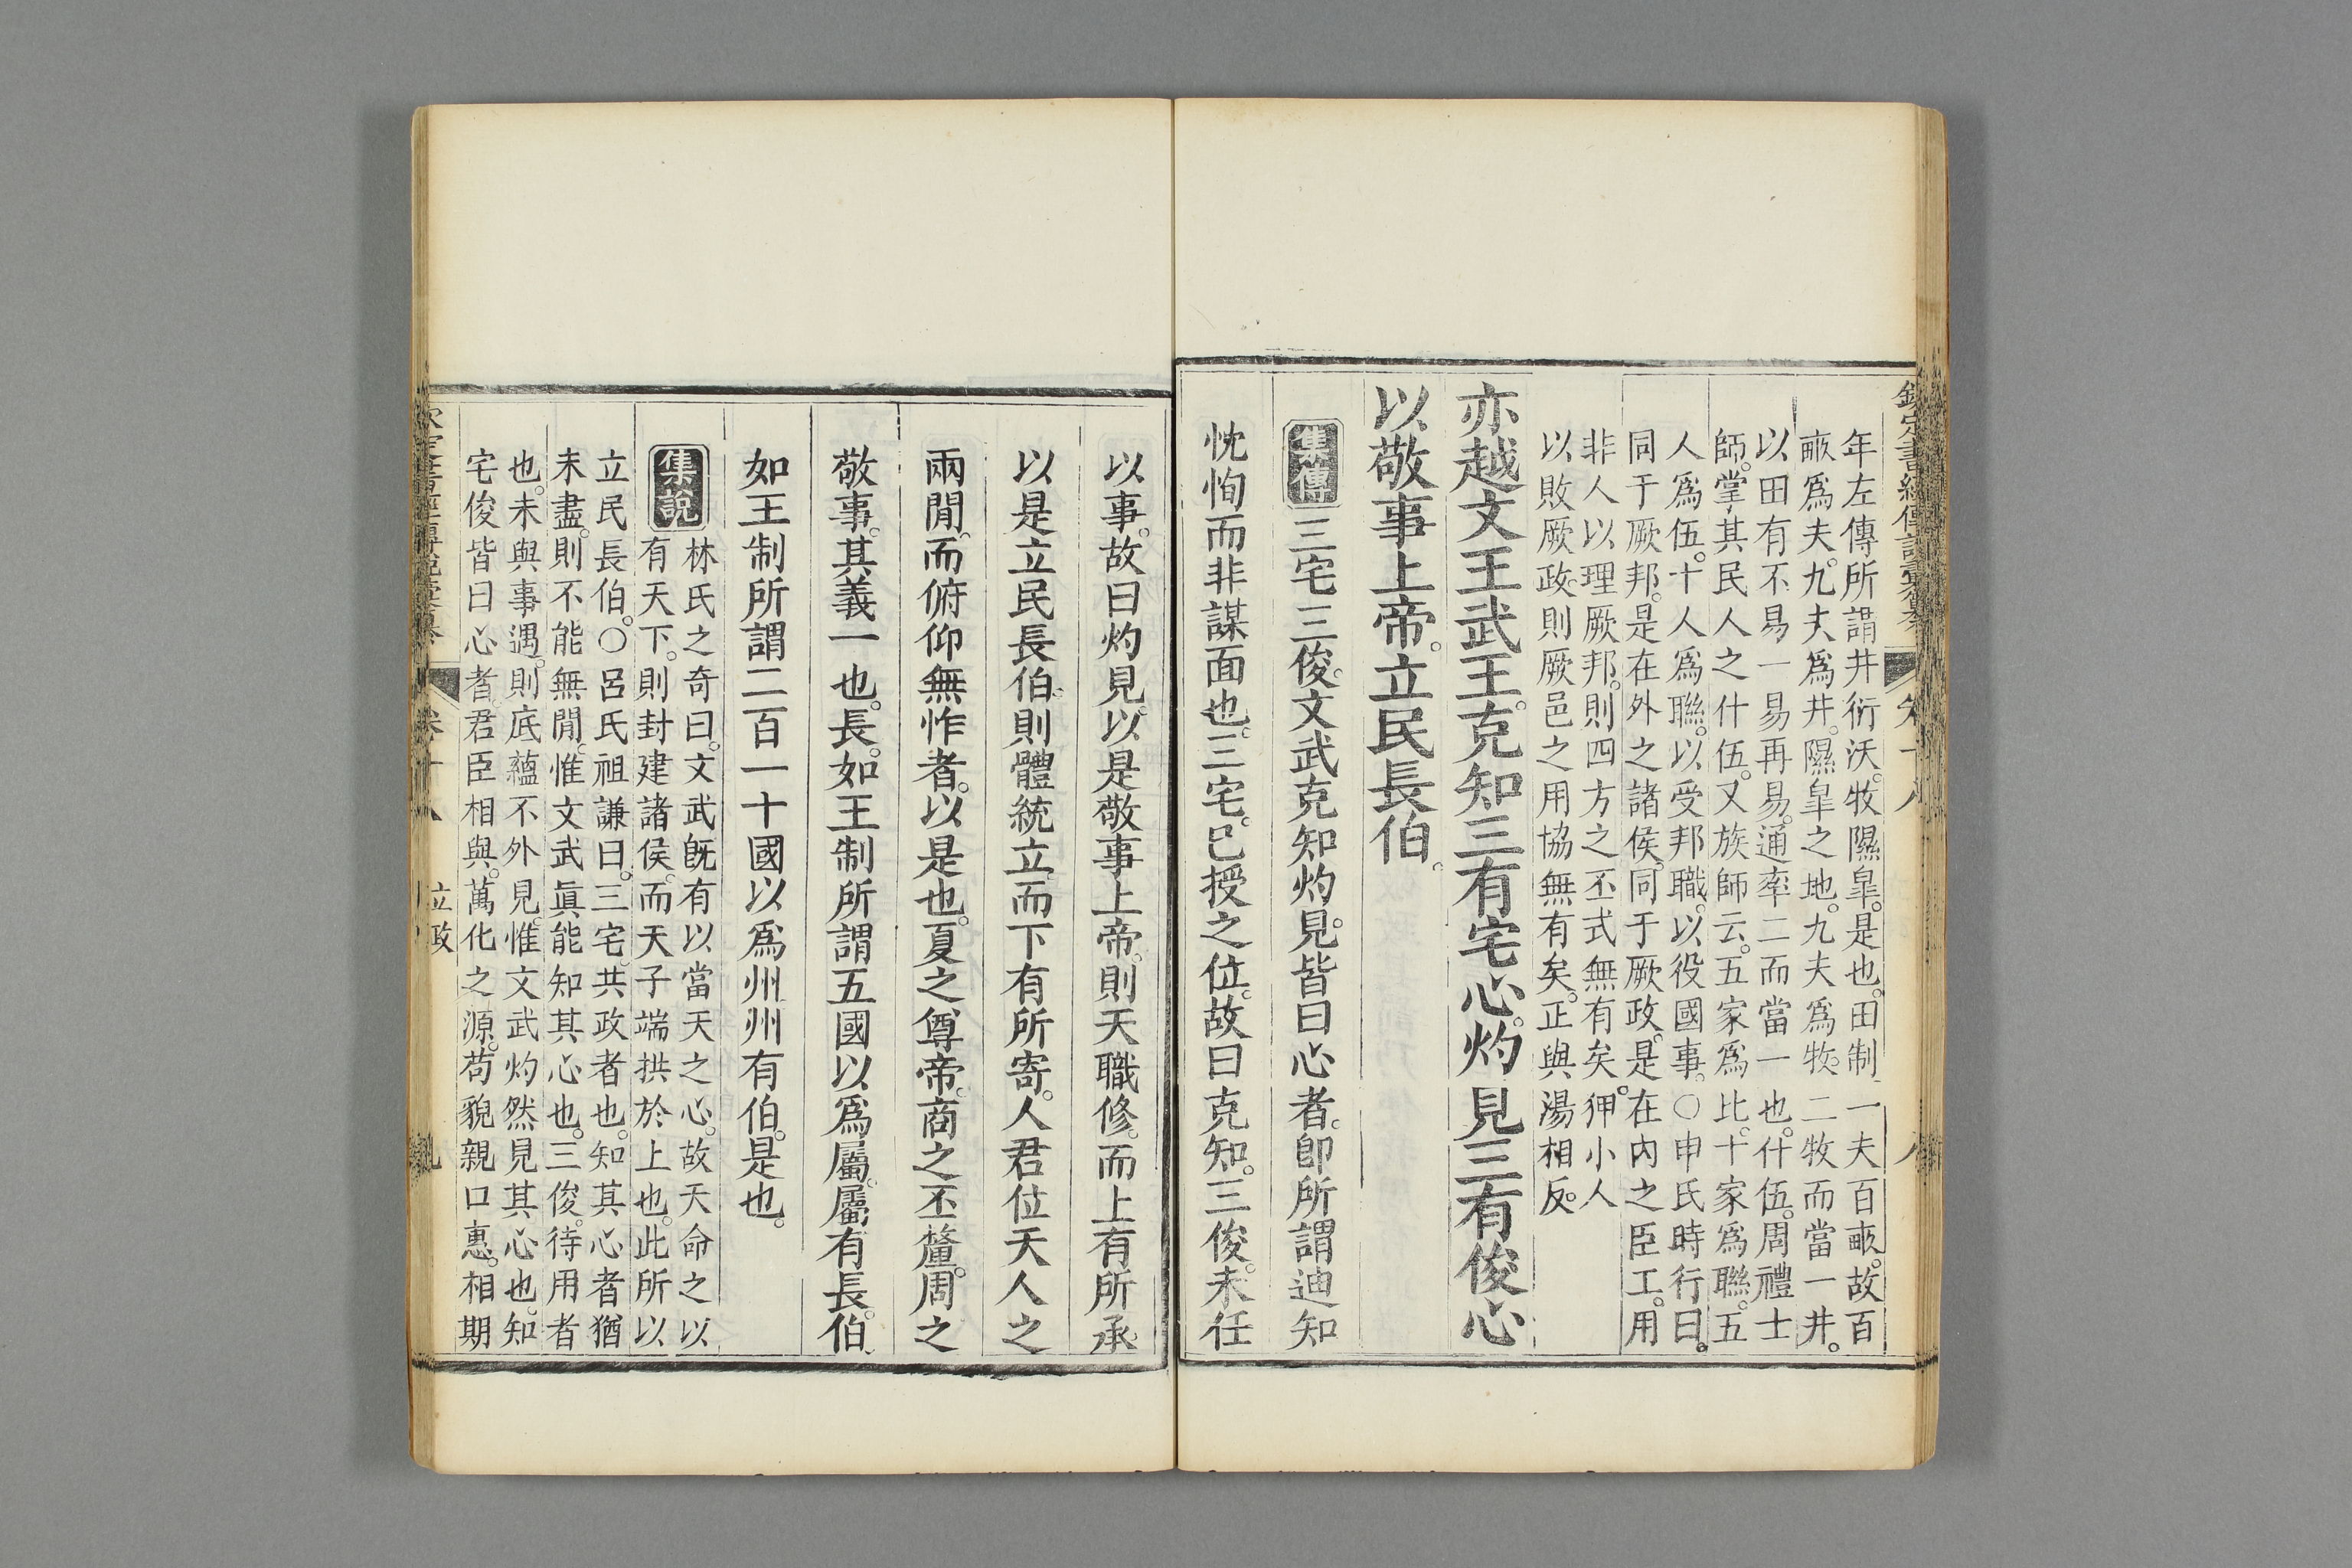 年左傳所謂井衍沃牧隰臯是也田制一夫百畝故百
畝爲夫九夫爲井隰臯之地九夫爲牧二牧而當一井
以田有不易一易再易通率二而當一也什伍周禮士
師掌其民人之什伍又族師云五家爲比十家爲聯五
人爲伍十人爲聯以受邦職以役國事○申氏時行曰
同于厥邦是在外之諸侯同于厥政是在内之臣工用
非人以理厥邦則四方之丕式無有矣狎小人
以敗厥政則厥邑之用協無有矣正與湯相反
亦越文王武王克知三有宅心灼見三有俊心
以敬事上帝立民長伯
集傳三宅三俊文武克知灼見皆曰心者卽所謂迪知
忱恂而非謀面也三宅已授之位故曰克知三俊未任
以事故曰灼見以是敬事上帝則天職修而上有所承
以是立民長伯則體統立而下有所寄人君位天人之
兩閒而俯仰無怍者以是也夏之尊帝商之丕釐周之
敬事其義一也長如王制所謂五國以爲屬屬有長伯
如王制所謂二百一十國以爲州州有伯是也
集說林氏之奇曰文武旣有以當天之心故天命之以
有天下則封建諸侯而天子端拱於上也此所以
立民長伯○呂氏祖謙曰三宅共政者也知其心者猶
未盡則不能無閒惟文武眞能知其心也三俊待用者
也未與事遇則底蘊不外見惟文武灼然見其心也知
宅俊皆曰心者君臣相與萬化之源苟貌親口惠相期
立政